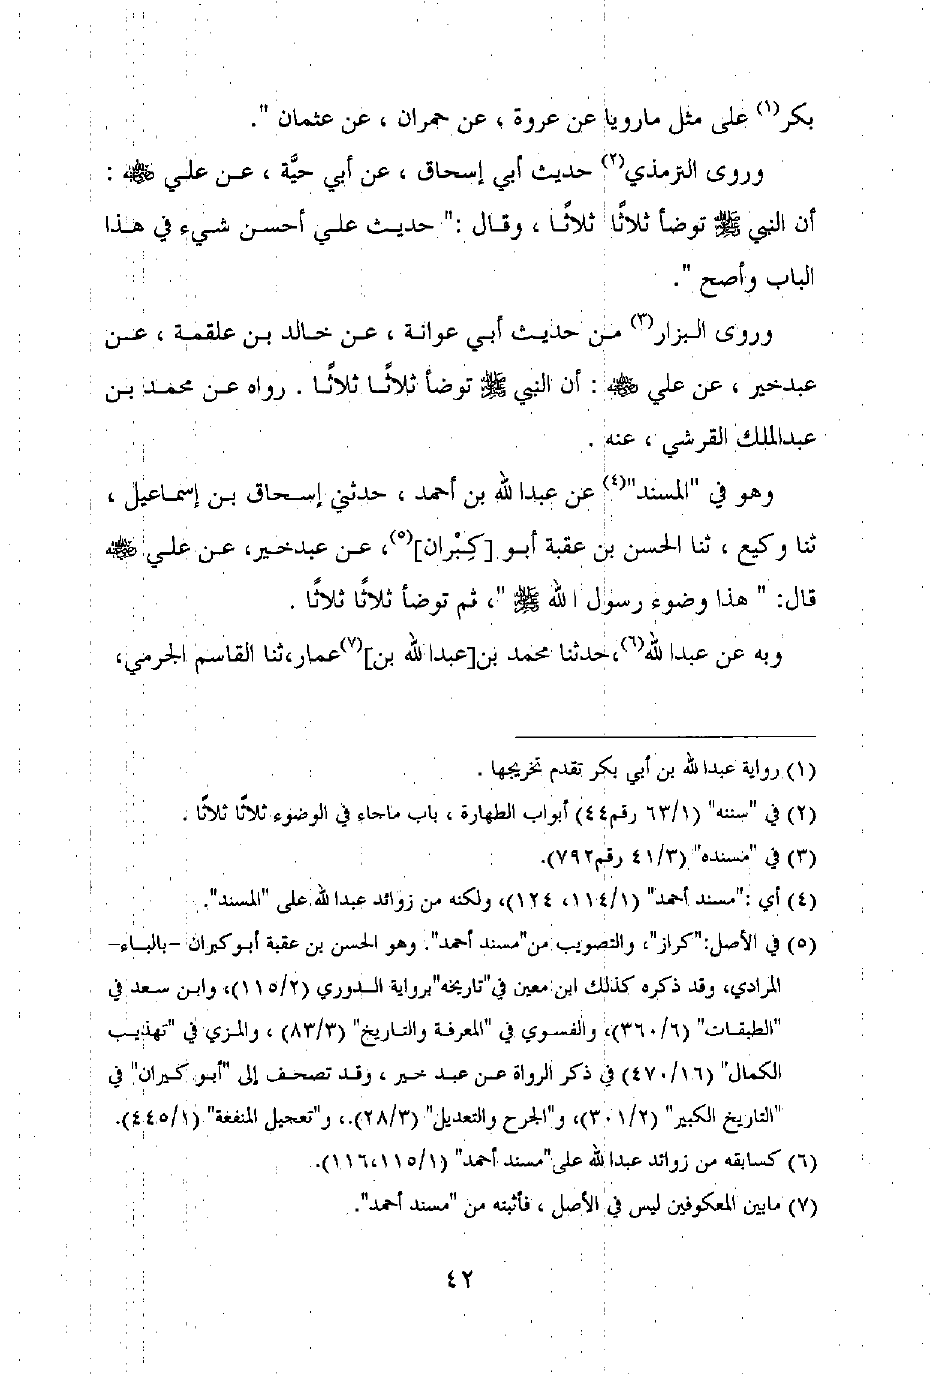 بكر(١) على مثل مارويا عن عروة ، عن حمران ، عن عثمان ".
وروى الترمذي(٢) حديث أبي إسحاق ، عن أبي حيَّة ، عن علي ﷺ :
أن النبي ﷺ توضأ ثلاثًا ثلاثًا ، وقال :" حديث علي أحسن شيء في هذا
الباب وأصح ".
وروى البزار(٣) من حديث أبي عوانة ، عن خالد بن علقمة ، عن
عبدخير ، عن علي ﷺ : أن النبي ﷺ توضأ ثلاثًا ثلاثًا . رواه عن محمد بن
عبدالملك القرشي ، عنه .
وهو في "المسند"(٤) عن عبدا لله بن أحمد ، حدثني إسحاق بن إسماعيل ،
ثنا وكيع ، ثنا الحسن بن عقبة أبو [كِبْران](٥)، عن عبدخير، عن علي ﷺ
قال: " هذا وضوء رسول الله ﷺ "، ثم توضأ ثلاثًا ثلاثًا .
وبه عن عبدا لله(٦)،حدثنا محمد بن[عبدا لله بن](٧)عمار،ثنا القاسم الجرمي،
(١) رواية عبدا لله بن أبي بكر تقدم تخريجها .
(٢) في "سننه" (٦٣/١ رقم٤٤) أبواب الطهارة ، باب ماجاء في الوضوء ثلاثًا ثلاثًا .
(٣) في "مسنده" (٤١/٣ رقم٧٩٢).
(٤) أي :"مسند أحمد" (١١٤/١، ١٢٤)، ولكنه من زوائد عبدا لله على "المسند".
(٥) في الأصل:"كراز"، والتصويب من"مسند أحمد". وهو الحسن بن عقبة أبوكبران –بالباء–
المرادي، وقد ذكره كذلك ابن معين في"تاريخه"برواية الدوري (١١٥/٢)، وابن سعد في
"الطبقات" (٣٦٠/٦)، والفسوي في "المعرفة والتاريخ" (٨٣/٣) ، والمزي في "تهذيب
الكمال" (٤٧٠/١٦) في ذكر الرواة عن عبد خير ، وقد تصحف إلى "أبو كيران" في
"التاريخ الكبير" (٣٠١/٢)، و"الجرح والتعديل" (٢٨/٣).، و"تعجيل المنفعة" (٤٤٥/١).
(٦) كسابقه من زوائد عبدا لله على"مسند أحمد" (١١٥/١،١١٦).
(٧) مابين المعكوفين ليس في الأصل ، فأثبته من "مسند أحمد".
٤٢